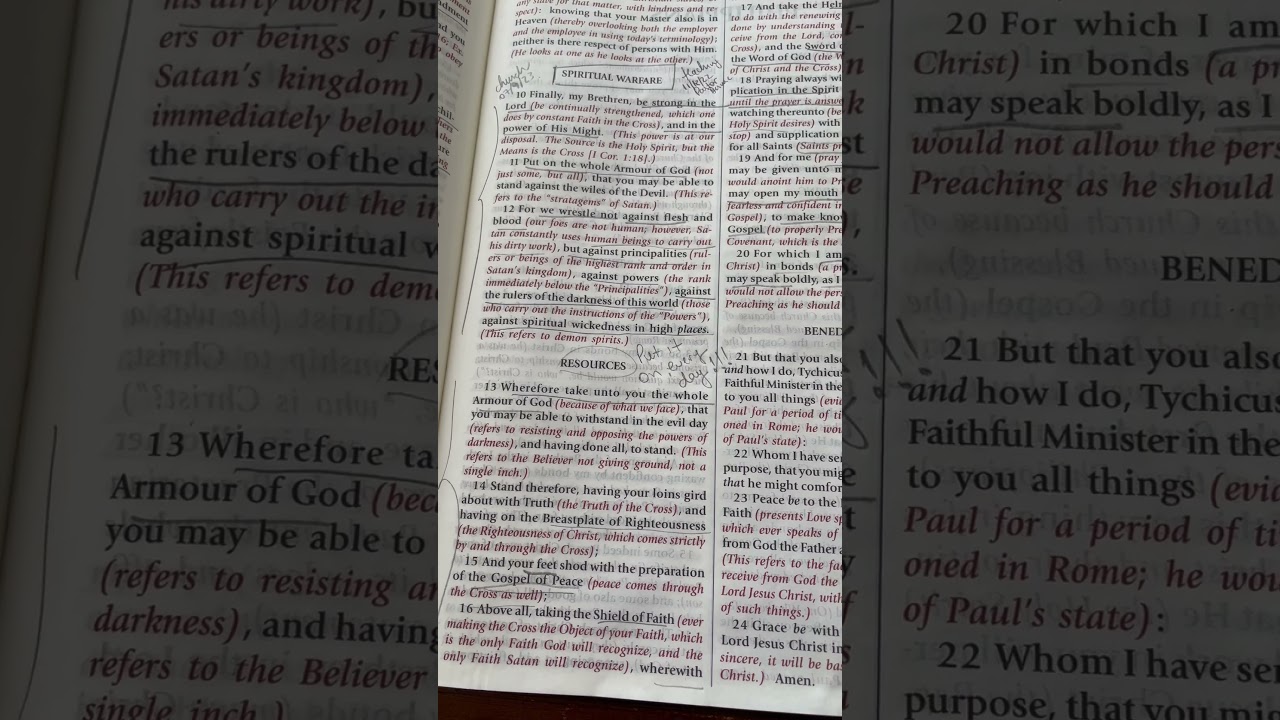 any slave for that matter, with kindness and re-
spect): knowing that your Master also is in
Heaven (thereby overlooking both the employer
and the employee in using today's terminology);
neither is there respect of persons with Him.
(He looks at one as he looks at the other.)
SPIRITUAL WARFARE
10 Finally, my Brethren, be strong in the
Lord (be continually strengthened, which one
does by constant Faith in the Cross), and in the
power of His Might. (This power is at our
disposal. The Source is the Holy Spirit, but the
Means is the Cross [I Cor. 1:18].)
11 Put on the whole Armour of God (not
just some, but all), that you may be able to
stand against the wiles of the Devil. (This re-
fers to the "stratagems" of Satan.)
12 For we wrestle not against flesh and
blood (our foes are not human; however, Sa-
tan constantly uses human beings to carry out
his dirty work), but against principalities (rul-
ers or beings of the highest rank and order in
Satan's kingdom), against powers (the rank
immediately below the "Principalities"), against
the rulers of the darkness of this world (those
who carry out the instructions of the "Powers"),
against spiritual wickedness in high places.
(This refers to demon spirits.)
RESOURCES
Put it
on every
day!!!
13 Wherefore take unto you the whole
Armour of God (because of what we face), that
you may be able to withstand in the evil day
(refers to resisting and opposing the powers of
darkness), and having done all, to stand. (This
refers to the Believer not giving ground, not a
single inch.)
14 Stand therefore, having your loins gird
about with Truth (the Truth of the Cross), and
having on the Breastplate of Righteousness
(the Righteousness of Christ, which comes strictly
by and through the Cross);
15 And your feet shod with the preparation
of the Gospel of Peace (peace comes through
the Cross as well);
16 Above all, taking the Shield of Faith (ever
making the Cross the Object of your Faith, which
is the only Faith God will recognize, and the
only Faith Satan will recognize), wherewith
17 And take the Hel
to do with the renewing
done by understanding
ceive from the Lord, co
Cross), and the Sword o
the Word of God (the W
of Christ and the Cross)
18 Praying always wi
plication in the Spirit
until the prayer is answe
watching thereunto (be
Holy Spirit desires) with
stop) and supplication
for all Saints (Saints pr
19 And for me (pray
may be given unto m
would anoint him to Pr
may open my mouth
fearless and confident in
Gospel), to make kno
Gospel (to properly Pr
Covenant, which is the
20 For which I am
Christ) in bonds (a pr
may speak boldly, as I
would not allow the pers
Preaching as he should
BENED
21 But that you also
and how I do, Tychicus
Faithful Minister in the
to you all things (evid
Paul for a period of ti
oned in Rome; he wou
of Paul's state):
22 Whom I have sen
purpose, that you mig
that he might comfor
23 Peace be to the
Faith (presents Love sp
which ever speaks of
from God the Father a
(This refers to the fa
receive from God the
Lord Jesus Christ, with
of such things.)
24 Grace be with
Lord Jesus Christ in
sincere, it will be bas
Christ.) Amen.